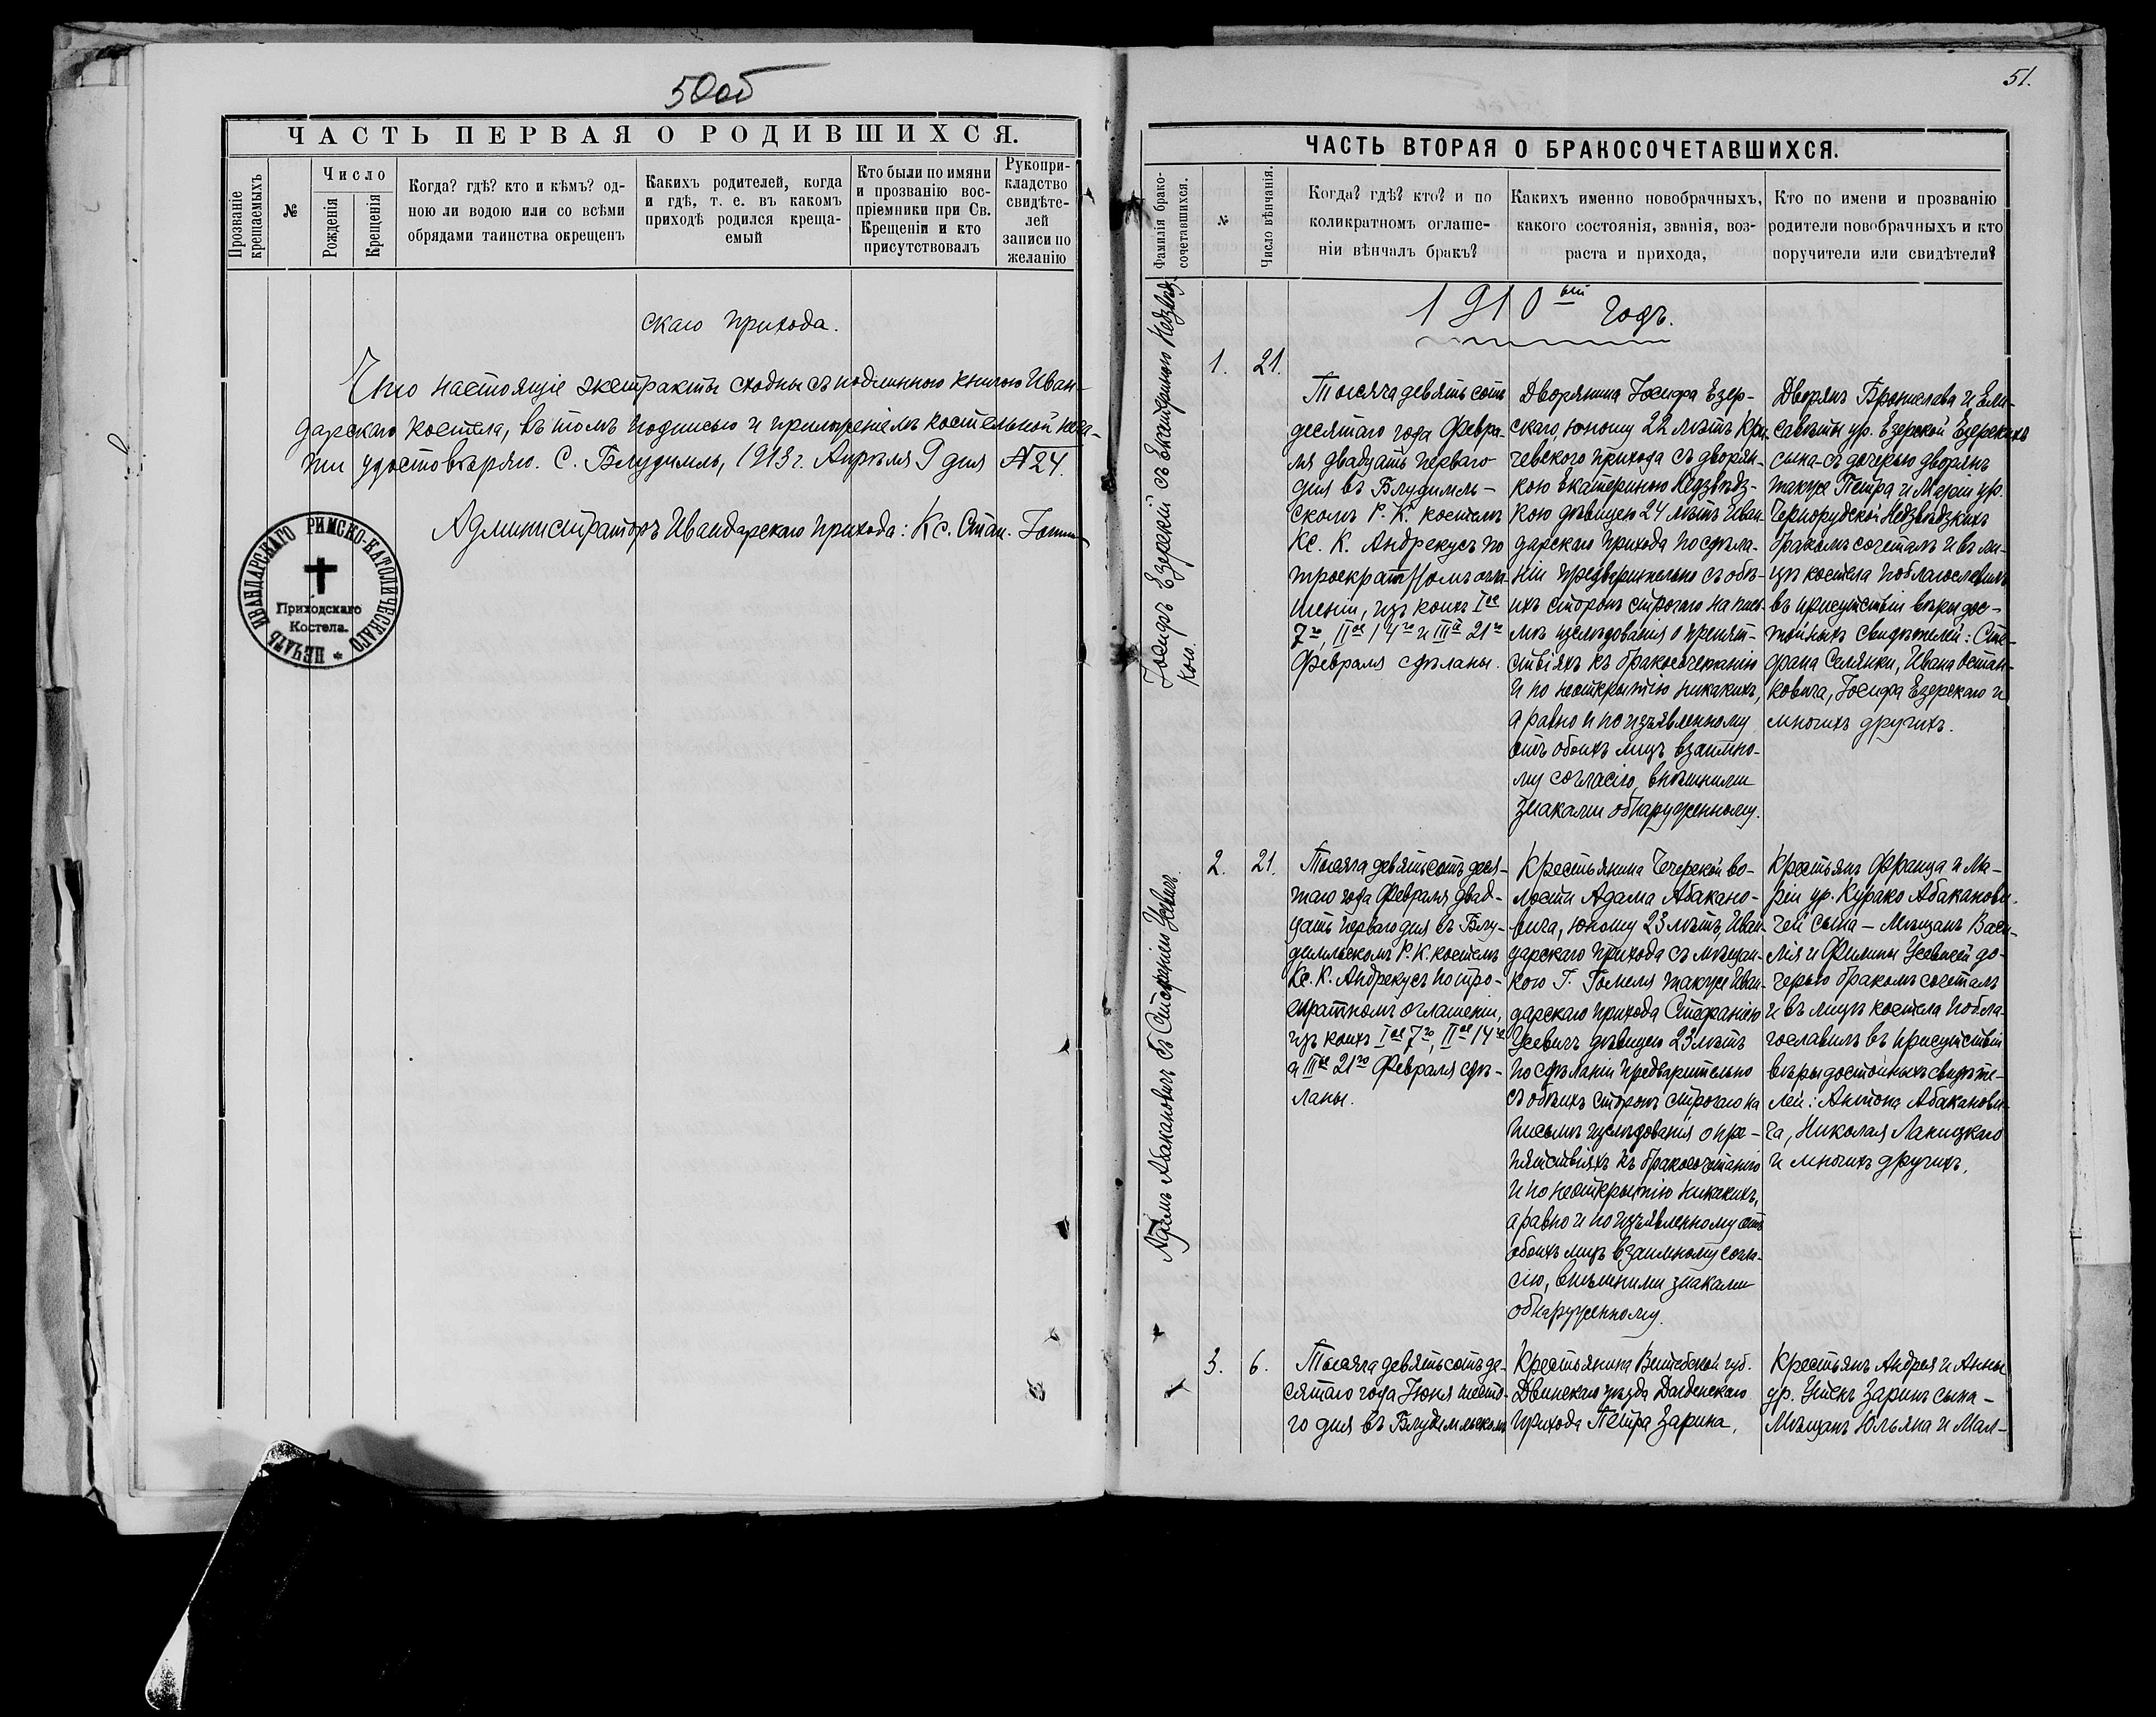 50об
ЧАСТЬ ПЕРВАЯ О РОДИВШИХСЯ.
Прозваніе крещаемыхъ
№
Число
Рожденія
Крещенія
Когда? гдѣ? кто и кѣмъ? од-
ною ли водою или со всѣми
обрядами таинства окрещенъ
Какихъ родителей, когда
и гдѣ, т. е. въ какомъ
приходѣ родился креща-
емый
Кто были по имяни
и прозванію вос-
пріемники при Св.
Крещеніи и кто
присутствовалъ
Рукопри-
кладство
свидѣте-
лей
записи по
желанію
скаго прихода.
Что настоящіе экстракты сходны съ подлинною книгою Иван-
дарскаго костела, въ томъ подписью и приложеніемъ костельной печа-
ти удостовѣряю. С. Блудимль, 1913 г. Апрѣля 9 дня №24.
Администраторъ Ивандарскаго прихода: Кс. Стан.
ПЕЧАТЬ ИВАНДАРСКАГО РИМСКО-КАТОЛИЧЕСКАГО
Приходскаго
Костела
51.
ЧАСТЬ ВТОРАЯ О БРАКОСОЧЕТАВШИХСЯ.
Фамилія брако-
сочетавшихся.
№
Число вѣнчанія.
Когда? гдѣ? кто? и по
коликратномъ оглаше-
ніи вѣнчалъ бракъ?
Какихъ именно новобрачныхъ,
какого состоянія, званія, воз-
раста и прихода,
Кто по имени и прозванію
родители новобрачныхъ и кто
поручители или свидѣтели?
1910ый годъ.
Іосифъ Езерскій съ Екатериною Недзвѣдз-
кою.
1.
21.
Тысяча девятьсотъ
десятаго года Февра-
ля двадцать перваго
дня въ Блудимль-
скомъ Р. К. костелѣ
Кс. К. Андрекусъ по
троекратномъ огла-
шеніи, изъ коихъ Iое
7го, IIое 14го и IIIе 21го
Февраля сдѣланы.
Дворянина Іосифа Езер-
скаго, юношу 22 лѣтъ Кри-
чевского прихода съ дворян-
кою Екатериною Недзвѣдз-
кою дѣвицею 24 лѣтъ Иван-
дарскаго прихода по сдѣла-
ніи предварительно съ обѣ-
ихъ сторонъ строгаго на пись-
мѣ изслѣдованія о препят-
ствіяхъ къ бракосочетанію
и по неоткрытію никакихъ,
а равно и по изъявленному
отъ обоихъ лицъ взаимно-
му согласію, внѣшними
знаками обнаруженному.
Дворянъ Бронислава и Ели-
саветы ур. Езерской Езерскихъ
сына – съ дочерью дворянъ
также Петра и Маріи ур.
Чернорудской Недзвѣдзкихъ
бракомъ сочеталъ и въ ли-
цѣ костела поблагословилъ
въ присутствіи вѣры дос-
тойныхъ свидѣтелей: Сте-
фана Селянки, Ивана Остан-
ковича, Іосифа Езерскаго и
многихъ другихъ.
Адамъ Абакановичъ съ Стефаніею Усевичъ.
2.
21.
Тысяча девятьсотъ деся-
таго года Февраля двад-
цать перваго дня въ Блу-
димльскомъ Р. К. костелѣ
Кс. К. Андрекусъ по трое-
кратномъ оглашеніи,
изъ коихъ Iое 7го, IIое 14го
и IIIое 21го Февраля сдѣ-
ланы.
Крестьянина Чечерской во-
лости Адама Абакано-
вича, юношу 23 лѣтъ, Иван-
дарскаго прихода съ мѣщан-
кою Г. Гомеля также Иван-
дарскаго прихода Стефаніею
Усевичъ дѣвицею 23 лѣтъ
по сдѣланіи предварительно
съ обѣихъ сторонъ строгаго на
письмѣ изслѣдованія о пре-
пятствіяхъ къ бракосочетанію
и по неоткрытію никакихъ,
а равно и по изъявленному отъ
обоихъ лицъ взаимному согла-
сію, внѣшними знаками
обнаруженному.
Крестьянъ Франца и Ма-
ріи ур. Курако Абаканови-
чей сына – Мѣщанъ Васи-
лія и Фелиціи Усевичей до-
черью бракомъ сочеталъ
и въ лицѣ костела побла-
гословилъ въ присутствіи
вѣры достойныхъ свидѣте-
лей: Антона Абаканови-
ча, Николая Ланицкаго
и многихъ другихъ.
3.
6.
Тысяча девятьсотъ де-
сятаго года Іюня шесто-
го дня въ Блудимльскомъ
Крестьянина Витебской губ.
Двинскаго уѣзда Дагденскаго
прихода Петра Зарина,
Крестьянъ Андрея и Анны
ур. Заринъ сына –
Мѣщанъ Юльяна и Мал-